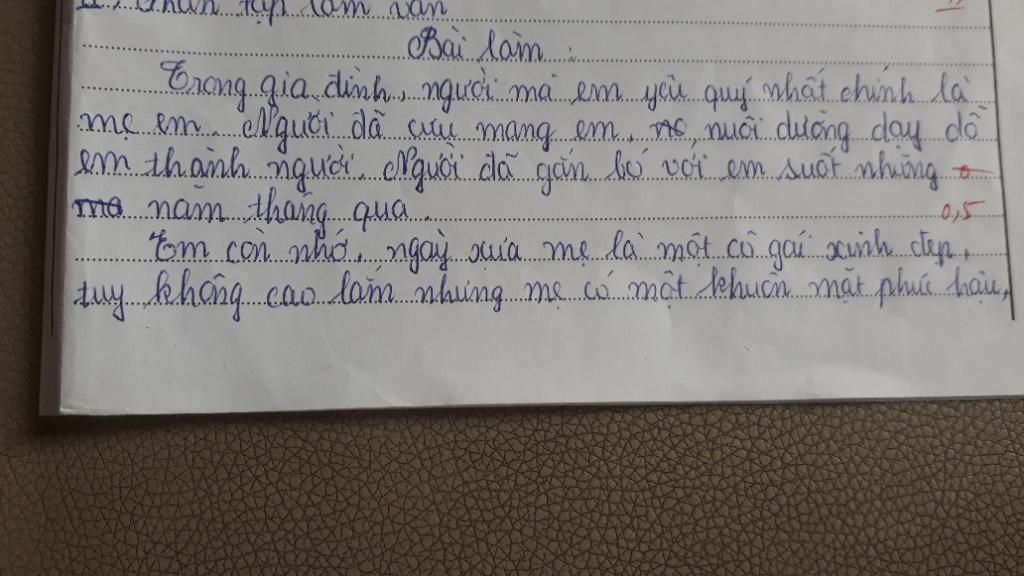 II, Phần tập làm văn
Bài làm :
Trong gia đình, người mà em yêu quý nhất chính là
mẹ em. Người đã cưu mang em, nuôi dưỡng dạy dỗ
em thành người. Người đã gắn bó với em suốt những
năm tháng qua.
0,5
Em còn nhớ, ngày xưa mẹ là một cô gái xinh đẹp,
tuy không cao lắm nhưng mẹ có một khuôn mặt phúc hậu,